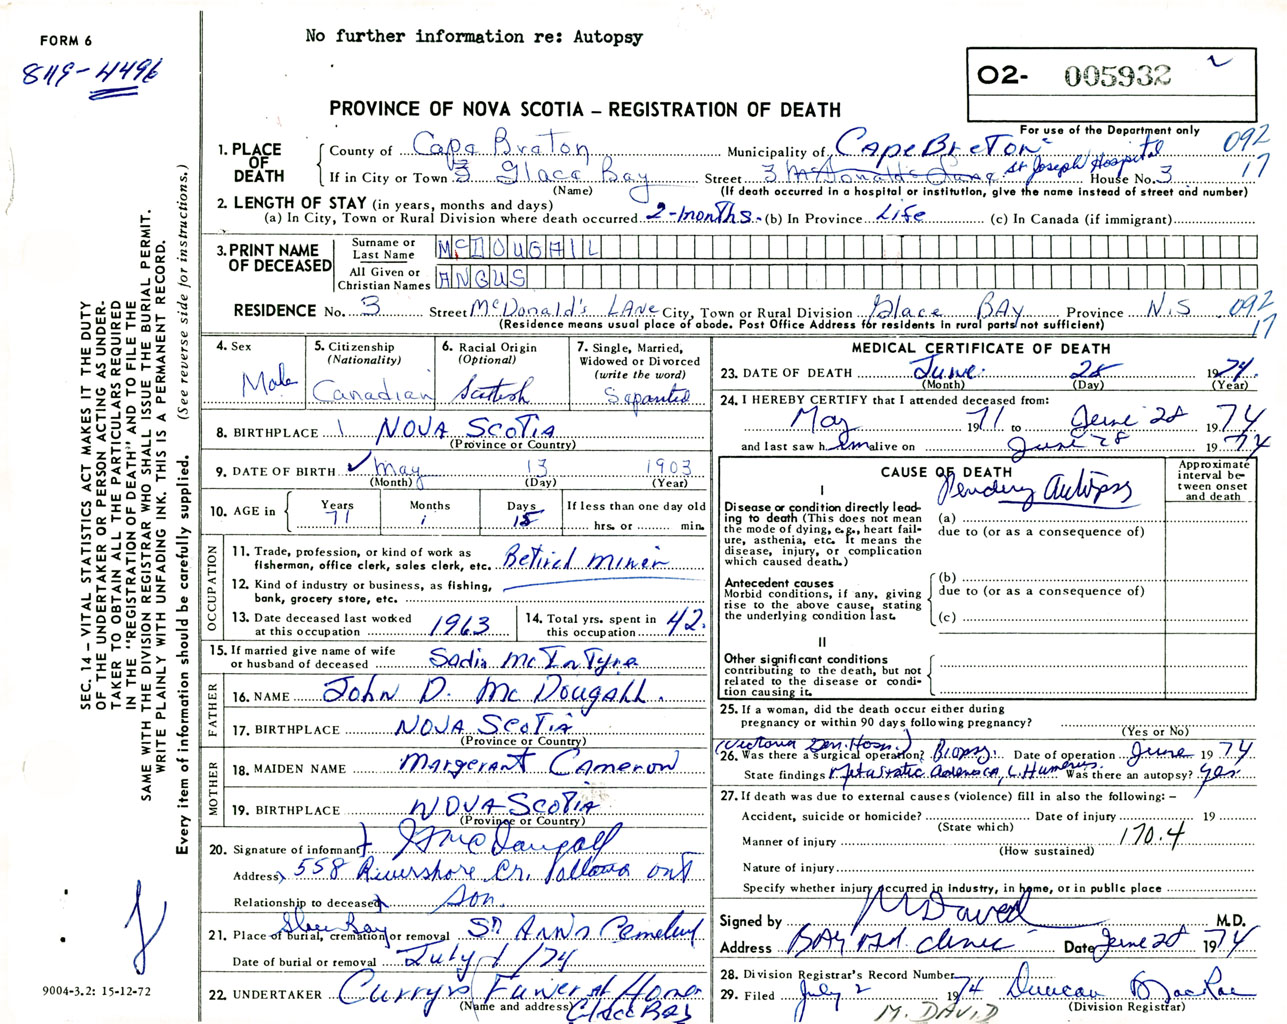 FORM 6
No further information re: Autopsy
849-4496
O2- 005932
PROVINCE OF NOVA SCOTIA – REGISTRATION OF DEATH
For use of the Department only
092
17
1. PLACE OF DEATH
County of Cape Breton Municipality of Cape Breton
If in City or Town 3 Glace Bay Street 3 McDonald's Lane St Joseph Hospital House No. 3
(Name) (If death occurred in a hospital or institution, give the name instead of street and number)
2. LENGTH OF STAY (in years, months and days)
(a) In City, Town or Rural Division where death occurred 2-months. (b) In Province Life (c) In Canada (if immigrant)
3. PRINT NAME OF DECEASED
Surname or Last Name MCDOUGALL
All Given or Christian Names ANGUS
RESIDENCE No. 3 Street McDonald's LANE City, Town or Rural Division Glace BAY Province N.S 092
(Residence means usual place of abode. Post Office Address for residents in rural parts not sufficient) 17
4. Sex
Male
5. Citizenship (Nationality)
Canadian
6. Racial Origin (Optional)
Scottish
7. Single, Married, Widowed or Divorced (write the word)
Separated
8. BIRTHPLACE NOVA SCOTIA
(Province or Country)
9. DATE OF BIRTH May 13 1903
(Month) (Day) (Year)
10. AGE in
Years Months Days If less than one day old
71 1 15 hrs. or min.
OCCUPATION
11. Trade, profession, or kind of work as fisherman, office clerk, sales clerk, etc. Retired miner
12. Kind of industry or business, as fishing, bank, grocery store, etc.
13. Date deceased last worked at this occupation 1963
14. Total yrs. spent in this occupation 42.
15. If married give name of wife or husband of deceased Sadie McIntyre
FATHER
16. NAME John D. McDougall.
17. BIRTHPLACE NOVA SCOTIA
(Province or Country)
MOTHER
18. MAIDEN NAME Margerant Cameron
19. BIRTHPLACE NOVA SCOTIA
(Province or Country)
20. Signature of informant McDougall
Address 558 Rivershore Cr. Ont
Relationship to deceased Son.
21. Place of burial, cremation or removal Glace Bay St Ann's Cemetery
Date of burial or removal July 1/74
22. UNDERTAKER Curry's Funeral Home
(Name and address) Glace Bay
MEDICAL CERTIFICATE OF DEATH
23. DATE OF DEATH June 28 1974.
(Month) (Day) (Year)
24. I HEREBY CERTIFY that I attended deceased from:
May 1971 to June 28 1974
and last saw him alive on June 28 1974
CAUSE OF DEATH
Approximate interval between onset and death
Pending Autopsy
I
Disease or condition directly leading to death (This does not mean the mode of dying, e.g., heart failure, asthenia, etc. It means the disease, injury, or complication which caused death.)
(a)
due to (or as a consequence of)
Antecedent causes
Morbid conditions, if any, giving rise to the above cause, stating the underlying condition last.
(b)
due to (or as a consequence of)
(c)
II
Other significant conditions
contributing to the death, but not related to the disease or condition causing it.
25. If a woman, did the death occur either during pregnancy or within 90 days following pregnancy?
(Yes or No)
(Victoria Gen. Hosp.)
26. Was there a surgical operation? Biopsy. Date of operation June 1974
State findings Metastatic adenoca, L. Humerus. Was there an autopsy? Yes.
27. If death was due to external causes (violence) fill in also the following: –
Accident, suicide or homicide? Date of injury 19
(State which)
Manner of injury 170.4
(How sustained)
Nature of injury
Specify whether injury occurred in industry, in home, or in public place
Signed by M David M.D.
Address BAY Med Clinic Date June 28 1974
28. Division Registrar's Record Number
29. Filed July 2 1974 Duncan MacRae
(Division Registrar)
M. DAVID
SEC. 14 – VITAL STATISTICS ACT MAKES IT THE DUTY
OF THE UNDERTAKER OR PERSON ACTING AS UNDER-
TAKER TO OBTAIN ALL THE PARTICULARS REQUIRED
IN THE "REGISTRATION OF DEATH" AND TO FILE THE
SAME WITH THE DIVISION REGISTRAR WHO SHALL ISSUE THE BURIAL PERMIT.
WRITE PLAINLY WITH UNFADING INK. THIS IS A PERMANENT RECORD.
Every item of information should be carefully supplied. (See reverse side for instructions.)
9004-3.2: 15-12-72